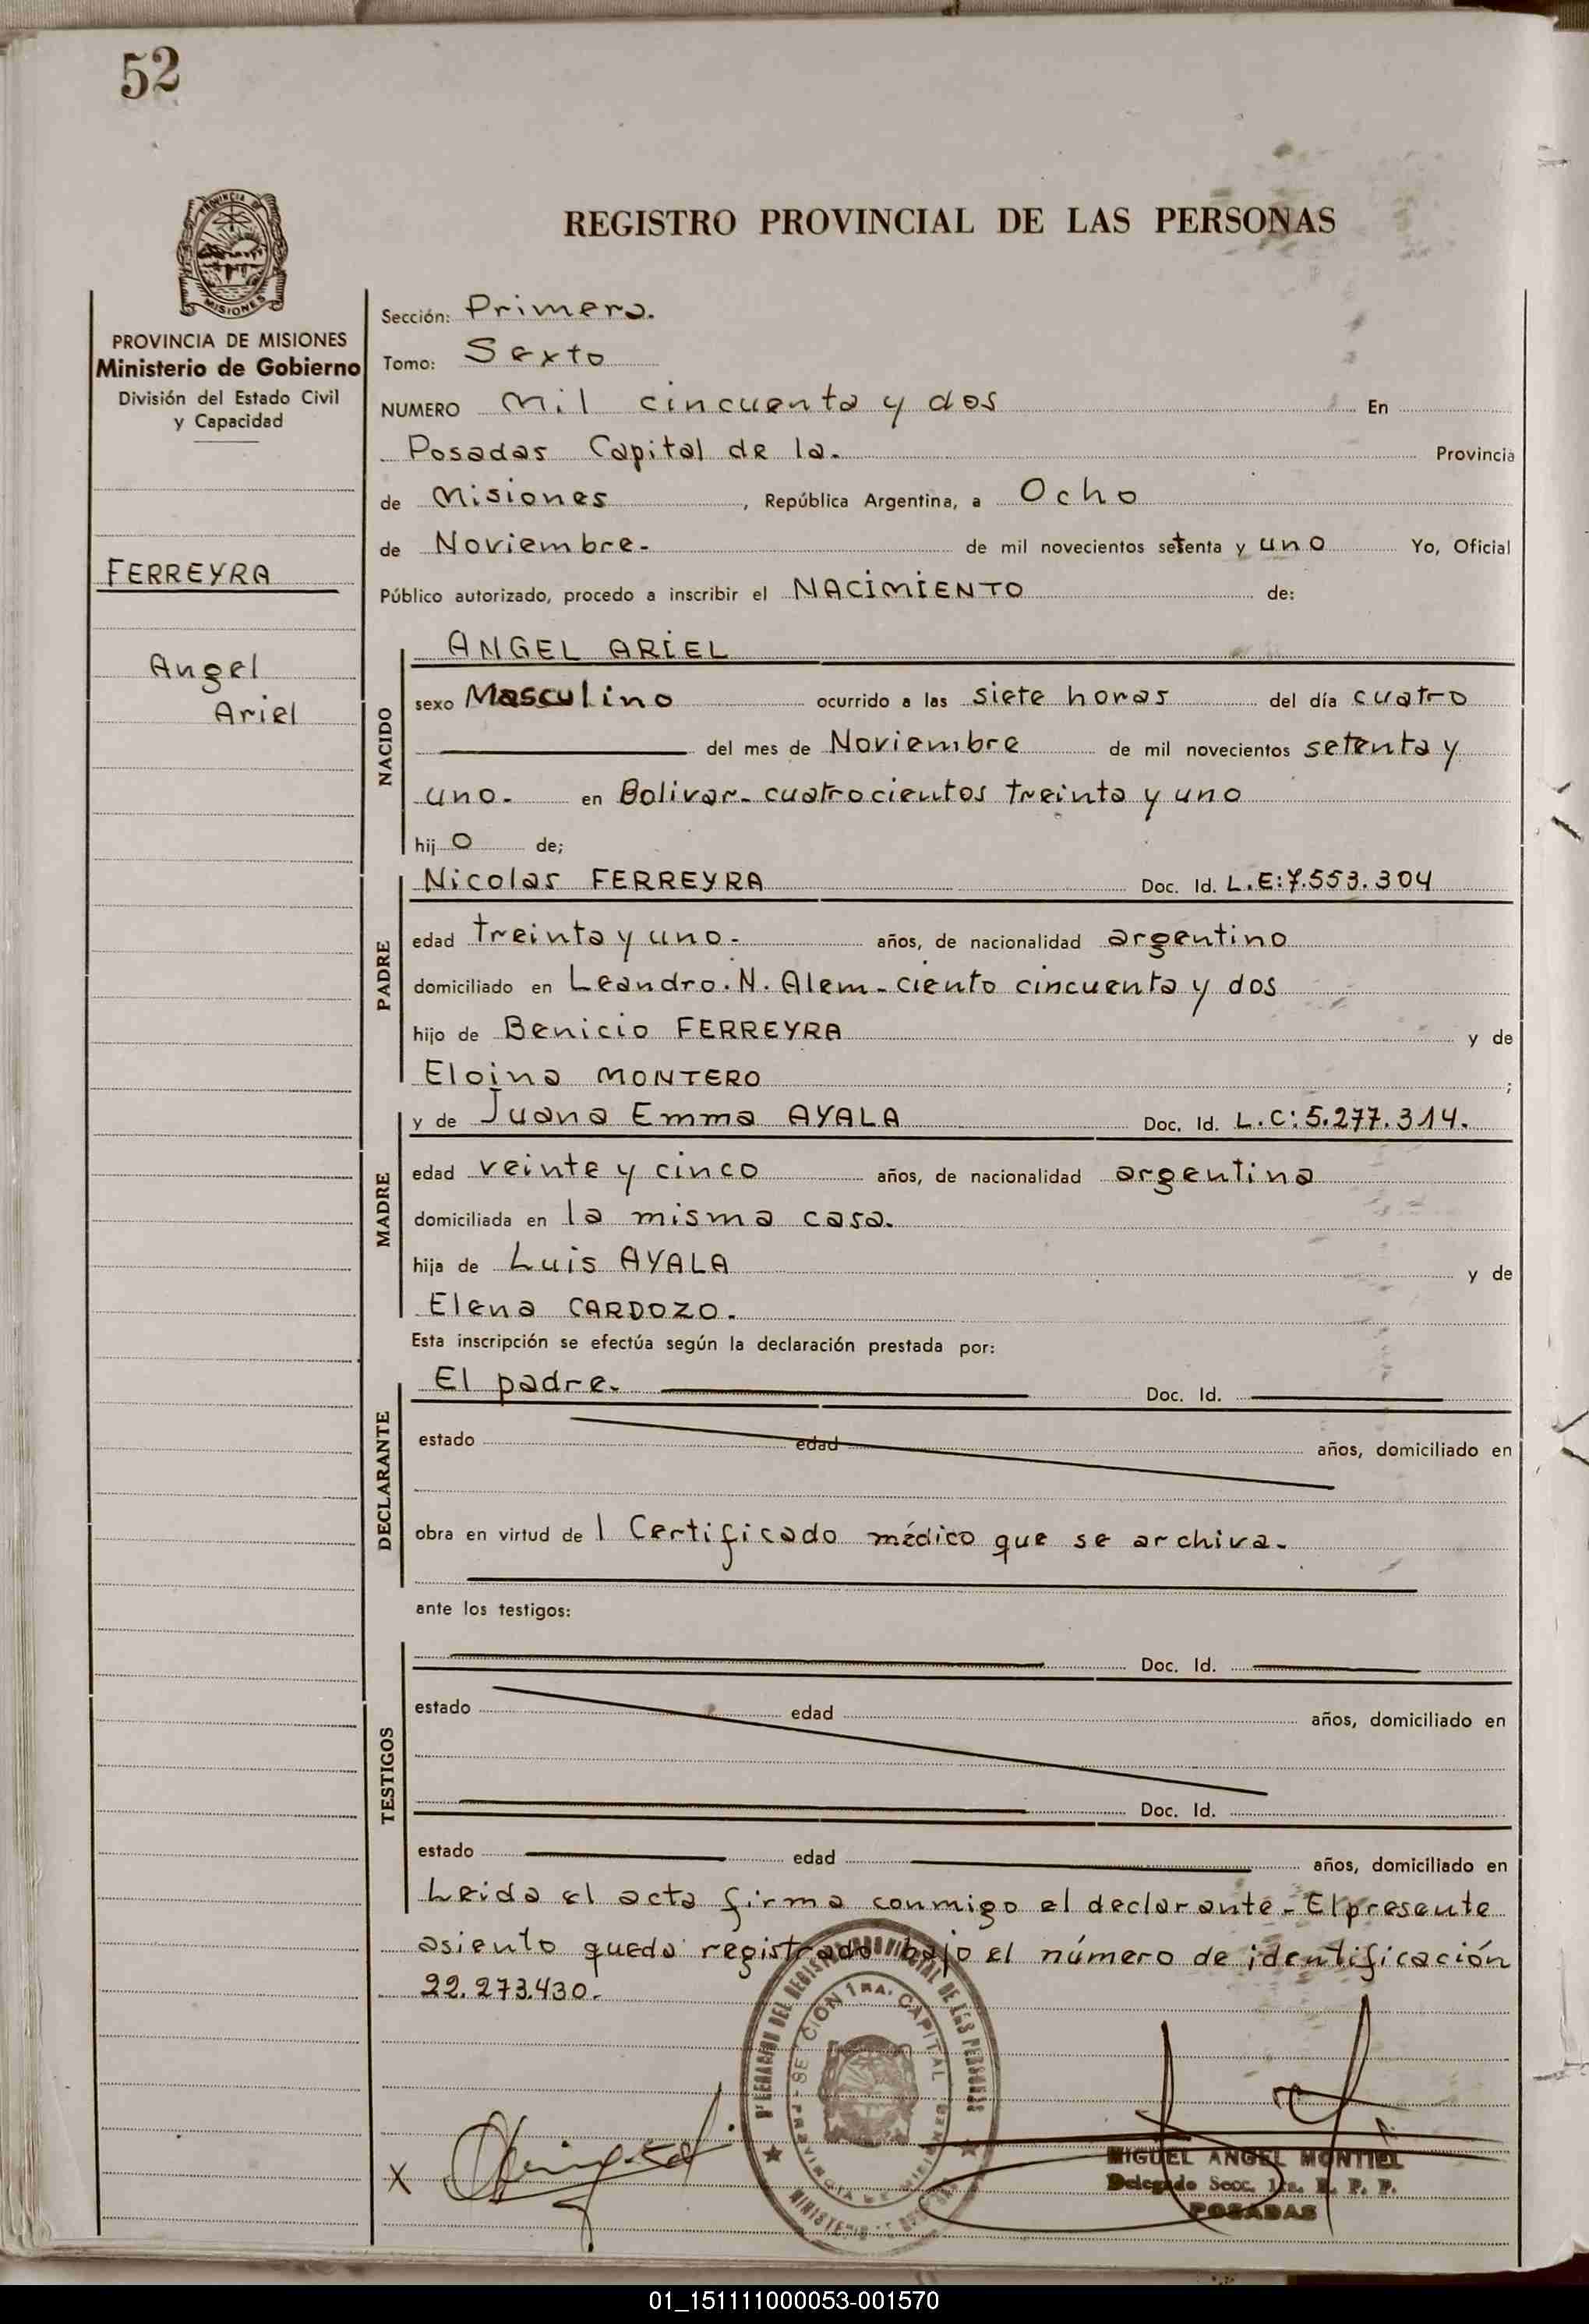 52
PROVINCIA DE
MISIONES
PROVINCIA DE MISIONES
Ministerio de Gobierno
División del Estado Civil
y Capacidad
FERREYRA
Angel
Ariel
REGISTRO PROVINCIAL DE LAS PERSONAS
Sección: Primera.
Tomo: Sexto
NUMERO Mil cincuenta y dos En
Posadas Capital de la. Provincia
de Misiones, República Argentina, a Ocho
de Noviembre- de mil novecientos setenta y uno Yo, Oficial
Público autorizado, procedo a inscribir el NACIMIENTO de:
NACIDO
ANGEL ARIEL
sexo Masculino ocurrido a las siete horas del día cuatro
del mes de Noviembre de mil novecientos setenta y
uno- en Bolivar- cuatrocientos treinta y uno
hijo de;
PADRE
Nicolas FERREYRA Doc. Id. L.E:7.553.304
edad treinta y uno- años, de nacionalidad argentino
domiciliado en Leandro.N.Alem-ciento cincuenta y dos
hijo de Benicio FERREYRA y de
Eloina MONTERO ;
MADRE
y de Juana Emma AYALA Doc. Id. L.C:5.277.314.
edad veinte y cinco años, de nacionalidad argentina
domiciliada en la misma casa.
hija de Luis AYALA y de
Elena CARDOZO.
Esta inscripción se efectúa según la declaración prestada por:
DECLARANTE
El padre- Doc. Id.
estado edad años, domiciliado en
obra en virtud de l Certificado médico que se archiva-
ante los testigos:
TESTIGOS
Doc. Id.
estado edad años, domiciliado en
Doc. Id.
estado edad años, domiciliado en
Leida el acta firma conmigo el declarante-El presente
asiento queda registrado bajo el número de identificación
22.273.430-
SECCION 1RA. CAPITAL
PROVINCIA DE MISIONES
X
MIGUEL ANGEL MONTIEL
Delegado Secc. 1ra. R. P. P.
POSADAS
01_151111000053-001570